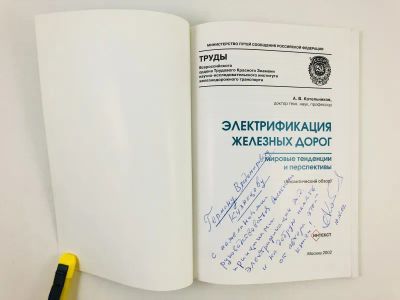 МИНИСТЕРСТВО ПУТЕЙ СООБЩЕНИЯ РОССИЙСКОЙ ФЕДЕРАЦИИ
ТРУДЫ
Всероссийского
ордена Трудового Красного Знамени
научно-исследовательского института
железнодорожного транспорта
А. В. Котельников,
доктор техн. наук, профессор
ЭЛЕКТРИФИКАЦИЯ
ЖЕЛЕЗНЫХ ДОРОГ
мировые тенденции
и перспективы
(Аналитический обзор)
Кузнецову
с пожеланиями
электрификации ж.д.
от
ИНТЕКСТ
Москва 2002